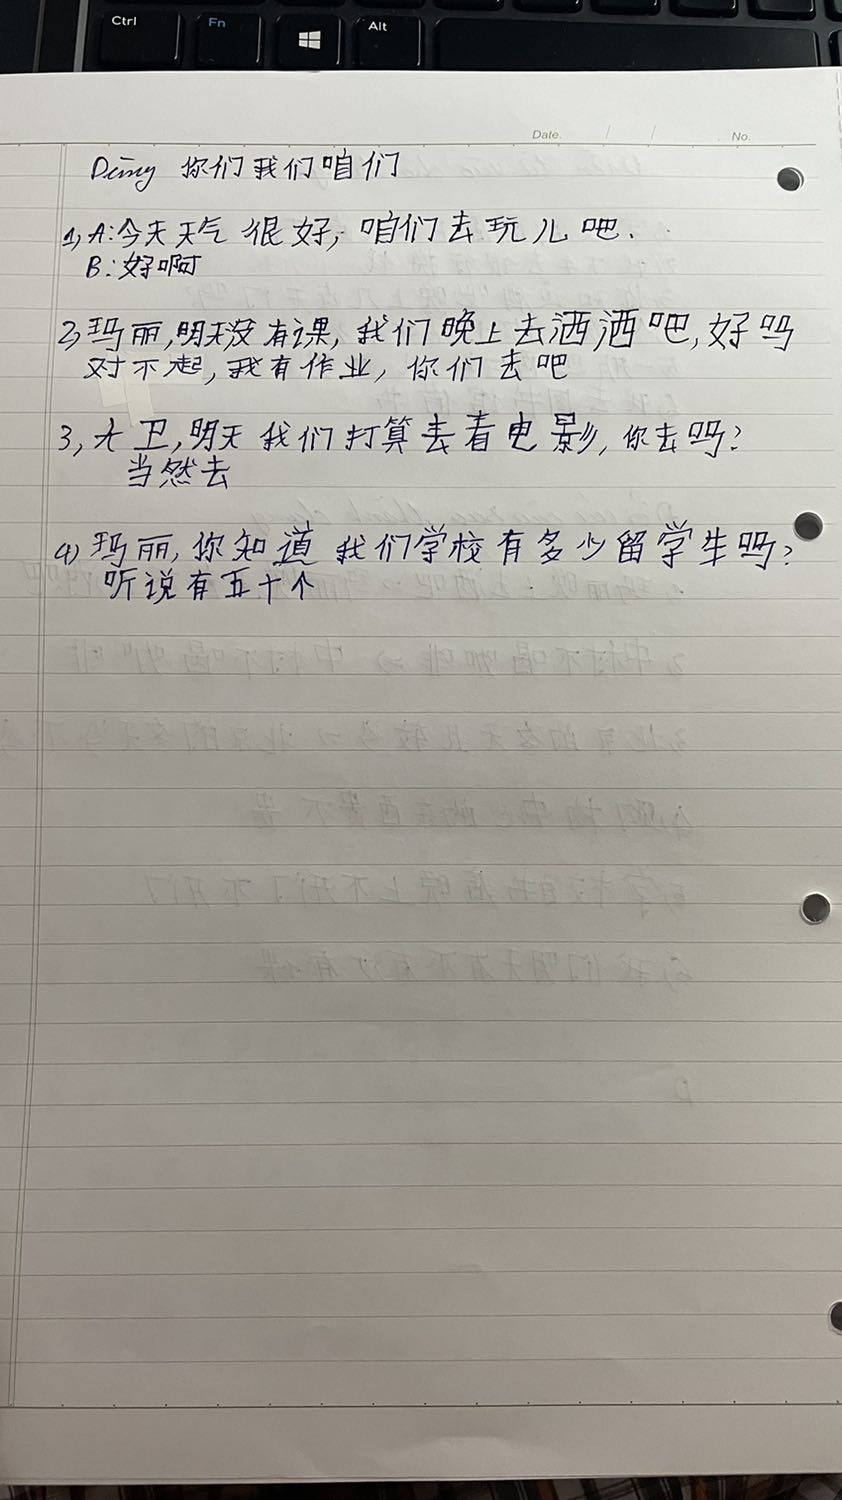 Ctrl Fn Alt
Date. / / No.
Dùng 你们我们咱们
1, A:今天天气很好, 咱们去玩儿吧.
B:好啊
2, 玛丽,明天没有课, 我们晚上去洒洒吧, 好吗
对不起, 我有作业, 你们去吧
3, 大卫, 明天我们打算去看电影, 你去吗?
当然去
4) 玛丽, 你知道我们学校有多少留学生吗?
听说有五十个